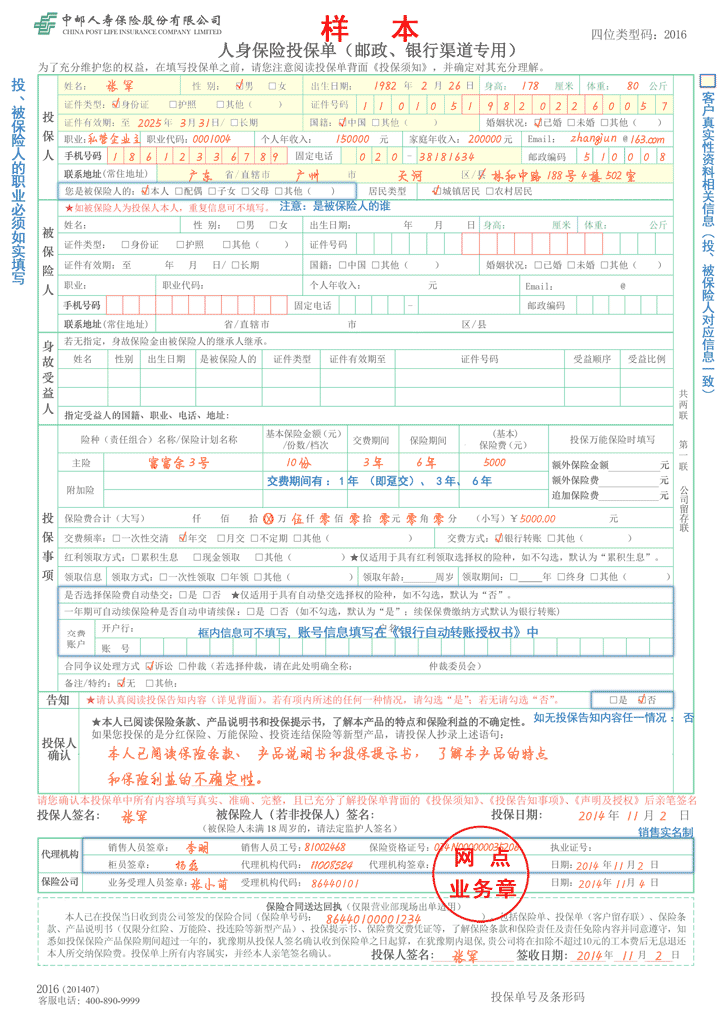 中邮人寿保险股份有限公司
CHINA POST LIFE INSURANCE COMPANY LIMITED
样 本
四位类型码：2016
人身保险投保单（邮政、银行渠道专用）
为了充分维护您的权益，在填写投保单之前，请您注意阅读投保单背面《投保须知》，并确定对其充分理解。
投、被保险人的职业必须如实填写
客户真实性资料相关信息（投、被保险人对应信息一致）
投保人
姓名： 张军 性 别：☑男 □女 出生日期： 1982 年 2 月 26 日 身高： 178 厘米 体重： 80 公斤
证件类型：☑身份证 □护照 □其他（ ） 证件号码 110105198202260057
证件有效期：至 2025 年 3 月 31 日/□长期 国籍：☑中国 □其他（ ） 婚姻状况：☑已婚 □未婚 □其他（ ）
职业：私营企业主 职业代码：0001004 个人年收入： 150000 元 家庭年收入：200000 元 Email: zhangjun @163.com
手机号码 18612336789 固定电话 020-38181634 邮政编码 510008
联系地址(常住地址) 广东 省/直辖市 广州 市 天河 区/县 林和中路188号4楼502室
您是被保险人的：☑本人 □配偶 □子女 □父母 □其他（ ） 居民类型 ☑城镇居民 □农村居民
★如被保险人为投保人本人，重复信息可不填写。 注意：是被保险人的谁
被保险人
姓名： 性 别：□男 □女 出生日期： 年 月 日 身高： 厘米 体重： 公斤
证件类型：□身份证 □护照 □其他（ ） 证件号码
证件有效期：至 年 月 日/□长期 国籍：□中国 □其他（ ） 婚姻状况：□已婚 □未婚 □其他（ ）
职业： 职业代码： 个人年收入： 元 Email: @
手机号码 固定电话 - 邮政编码
联系地址(常住地址) 省/直辖市 市 区/县
身故受益人
若无指定，身故保险金由被保险人的继承人继承。
姓名 性别 出生日期 是被保险人的 证件类型 证件有效期至 证件号码 受益顺序 受益比例
指定受益人的国籍、职业、电话、地址：
共两联 第一联 公司留存联
投保事项
险种（责任组合）名称/保险计划名称 基本保险金额(元)/份数/档次 交费期间 保险期间 (基本)保险费(元) 投保万能保险时填写
主险 富富余3号 10份 3年 6年 5000 额外保险金额 元
附加险 交费期间有：1年 （即趸交）、 3年、 6年 额外保险费 元
追加保险费 元
保险费合计（大写） 仟 佰 拾 万 伍仟 零佰 零拾 零元 零角 零分 （小写）￥5000.00 元
交费频率：□一次性交清 ☑年交 □月交 □不定期 □其他（ ） 交费方式：☑银行转账 □其他（ ）
红利领取方式：□累积生息 □现金领取 □其他（ ）★仅适用于具有红利领取选择权的险种，如不勾选，默认为“累积生息”。
领取信息 领取方式：□一次性领取 □年领 □其他（ ） 领取年龄： 周岁 领取期间：□ 年 □终身 □其他（ ）
是否选择保险费自动垫交：□是 □否 ★仅适用于具有自动垫交选择权的险种，如不勾选，默认为“否”。
一年期可自动续保险种是否自动申请续保：□是 □否（如不勾选，默认为“是”；续保保费缴纳方式默认为银行转账）
交费账户 开户行：
框内信息可不填写，账号信息填写在《银行自动转账授权书》中
账 号
合同争议处理方式 ☑诉讼 □仲裁（若选择仲裁，请在此处明确全称： 仲裁委员会）
备注/特约：☑无 □其他：
告知 ★请认真阅读投保告知内容（详见背面）。若有项内所述的任何一种情况，请勾选“是”；若无请勾选“否”。 □是 ☑否
投保人确认
★本人已阅读保险条款、产品说明书和投保提示书，了解本产品的特点和保险利益的不确定性。 如无投保告知内容任一情况：否
如果您投保的是分红保险、万能保险、投资连结保险等新型产品，请投保人抄录上述语句：
本人已阅读保险条款、产品说明书和投保提示书， 了解本产品的特点
和保险利益的不确定性。
请您确认本投保单中所有内容填写真实、准确、完整，且已充分了解投保单背面的《投保须知》、《投保告知事项》、《声明及授权》后亲笔签名
投保人签名： 张军 被保险人（若非投保人）签名： 投保日期： 2014 年 11 月 2 日
（被保险人未满18周岁的，请法定监护人签名）
销售实名制
代理机构 销售人员签章： 李明 销售人员工号：81002468 保险资格证号： 执业证号：
柜员签章： 杨磊 代理机构代码：11008524 代理机构签章： 日期：2014 年 11 月 2 日
保险公司 业务受理人员签章：张小萌 受理机构代码： 86440101 日期：2014 年 11 月 4 日
网 点
业务章
保险合同送达回执（仅限营业部现场出单适用）
本人已在投保当日收到贵公司签发的保险合同（保险单号码： 86440100001234 ），包括保险单、投保单（客户留存联）、保险条
款、产品说明书（仅限分红险、万能险、投连险等新型产品）、投保提示书、保险费交费凭证等，了解保险条款和保险责任及责任免除内容并同意遵守，知
悉如投保保险产品保险期间超过一年的，犹豫期从投保人签名确认收到保险单之日起算，在犹豫期内退保，贵公司将在扣除不超过10元的工本费后无息退还
本人所交纳保险费。投保单上所有内容属实，并经本人亲笔签名确认。 投保人签名： 张军 签收日期： 2014 年 11 月 2 日
2016 (201407)
客服电话：400-890-9999
投保单号及条形码